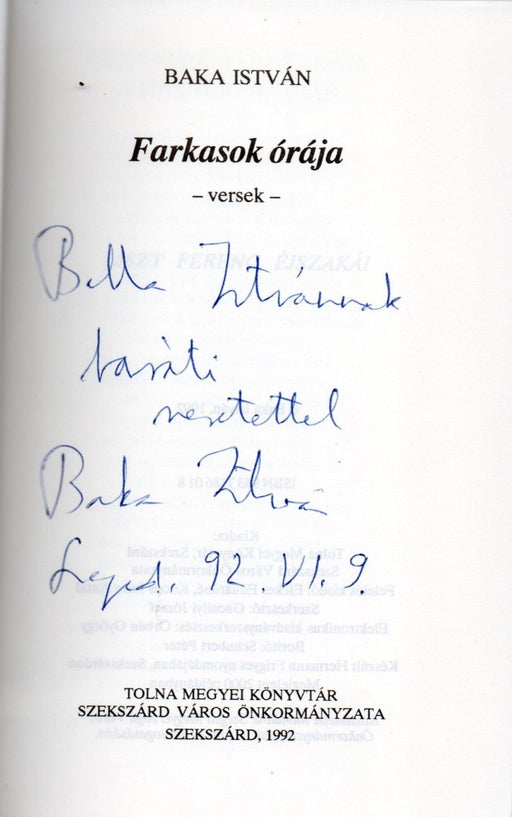 BAKA ISTVÁN
Farkasok órája
– versek –
Bella Istvánnak
baráti
szeretettel
Baka István
Szeged. 92. VI. 9.
TOLNA MEGYEI KÖNYVTÁR
SZEKSZÁRD VÁROS ÖNKORMÁNYZATA
SZEKSZÁRD, 1992